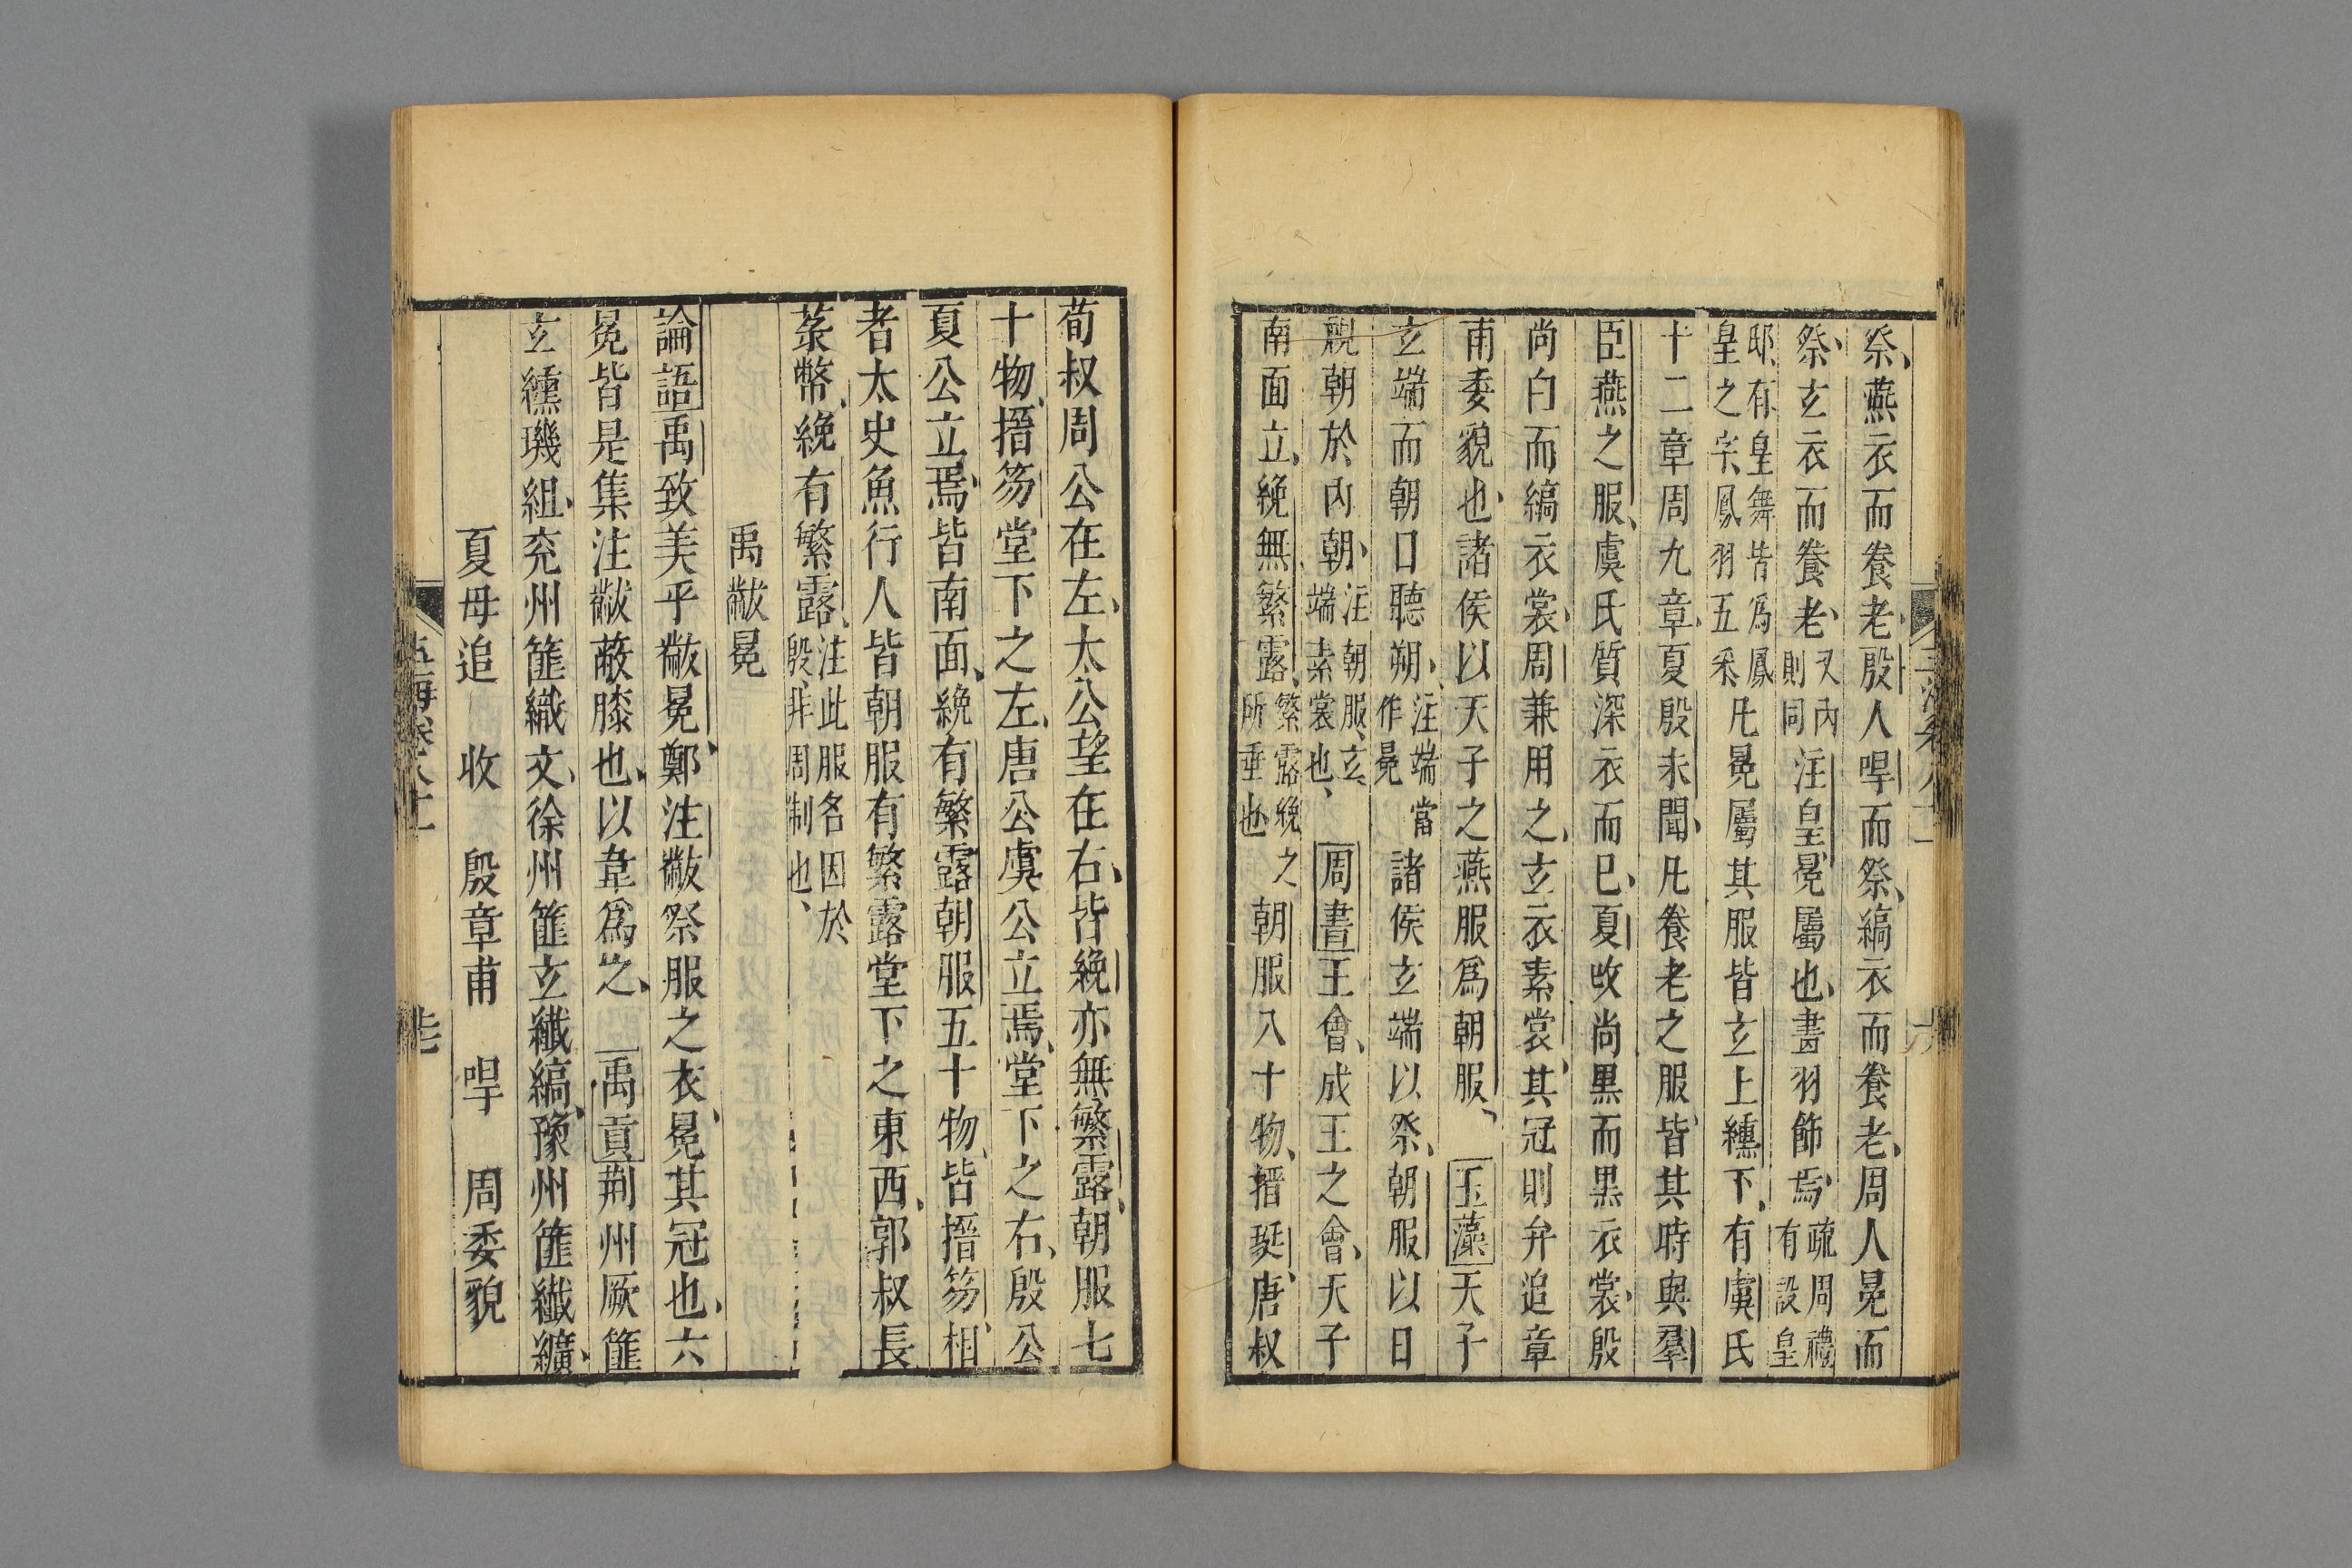 祭燕衣而養老殷人哻而祭縞衣而養老周人冕而
祭玄衣而養老又內則同注皇冕屬也畫羽飾焉疏周禮有設皇
邸有皇舞皆為鳳皇之字鳳羽五采凡冕屬其服皆玄上纁下有虞氏
十二章周九章夏殷未聞凡養老之服皆其時與羣
臣燕之服虞氏質深衣而已夏收尚黑而黑衣裳殷
尚白而縞衣裳周兼用之玄衣素裳其冠則弁追章
甫委貌也諸侯以天子之燕服爲朝服玉藻天子
玄端而朝日聽朔注端當作冕諸侯玄端以祭朝服以日
視朝於內朝注朝服玄端素裳也周書王會成王之會天子
南面立絻無繁露繁露絻之所垂也朝服八十物搢珽唐叔
荀叔周公在左太公望在右皆絻亦無繁露朝服七
十物搢笏堂下之左唐公虞公立焉堂下之右殷公
夏公立焉皆南面絻有繁露朝服五十物皆搢笏相
者太史魚行人皆朝服有繁露堂下之東西郭叔長
菉幣絻有繁露注此服名因於殷非周制也
禹黻冕
論語禹致美乎黻冕鄭注黻祭服之衣冕其冠也六
冕皆是集注黻蔽膝也以韋爲之禹貢荆州厥篚
玄纁璣組兖州篚織文徐州篚玄纖縞豫州篚纖纊
夏毋追　收　殷章甫　哻　周委貌
玉海卷八十一